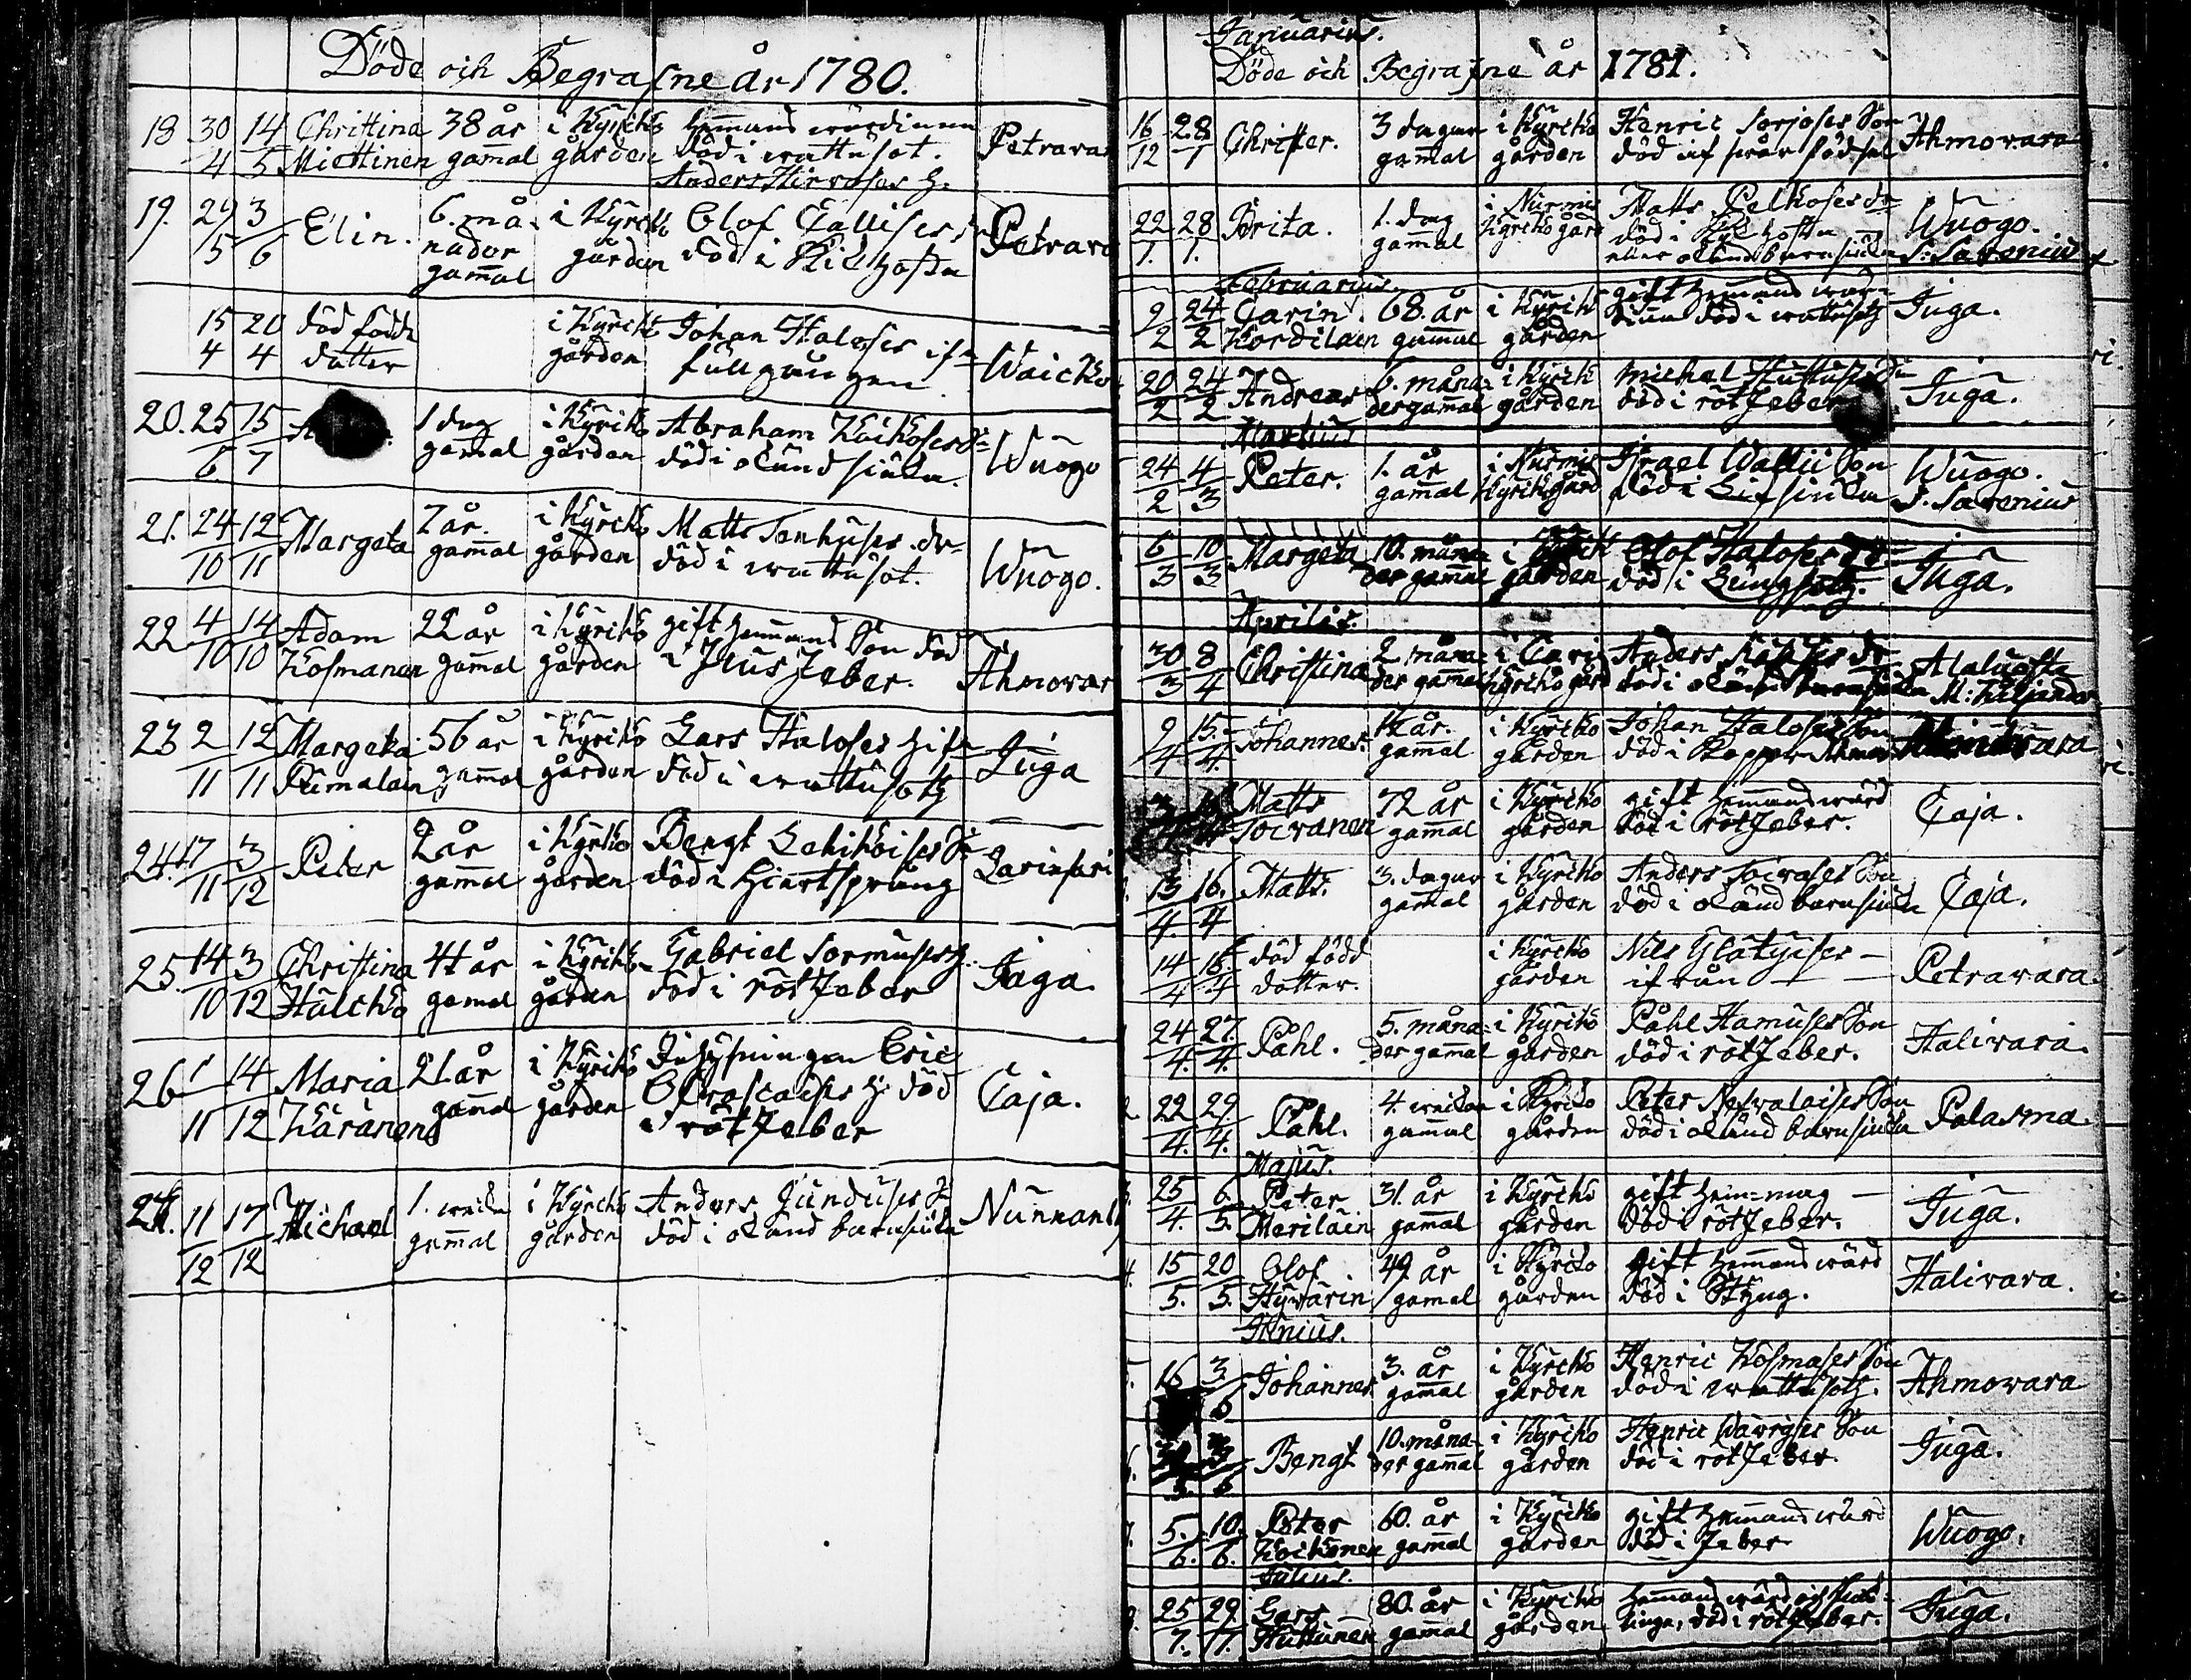 Döde och Begrafne år 1780.
18 30/4 14/5 Christina Miettinen 38 år gamal i Kyrcko gården Hemans wärdinna död i wattusot. Anders Hirvoses h. Petrava
19. 29/5 3/6 Elin. 6. må nador gamal i Kyrcko gården Olof Callises död i Kikhosta Petrava
15/4 20/4 död född dotter i Kyrcko gården Johan Haloses ifr fullgången Waicko
20. 25/6 15/7 1 dag gamal i Kyrcko gården Abraham Koikoses Sn död i okänd siuka. Wuogo
21. 24/10 12/11 Margeta 7 år gamal i Kyrcko gården Matts Tanhuses dr död i wattusot. Wuogo.
22 4/10 14/10 Adam Kosmanen 22 år gamal i Kyrcko gården gift hemmans Son död i Feber. Ahmovar
23 2/11 12/11 Margeta Pumalain 56 år gamal i Kyrcko gården Lars Haloses död i wattusot Juga
24. 17/11 3/12 Peter 2 år gamal i Kyrcko gården Bengt Lehikoises Sn död i Hiertsprång Larinsari
25. 14/10 3/12 Christina Hälcko 44 år gamal i Kyrcko gården Gabriel Sormuses h. död i rötfeber Juga.
26 1/11 14/12 Maria Käränen 21 år gamal i Kyrcko gården Inhysningen Eric h död i rötfeber Caja.
27. 11/12 17/12 Michael 1. wecka gamal i Kyrcko gården Anders Junduses Sn död i okänd barnsiuka Nunnanl
Januarius.
Döde och Begrafne år 1781.
16/12 28/1 Christer. 3 dagar gamal i Kyrcko gården Henric Sorjoses Son död af svår födsel Ahmovara
22/1. 28/1. Brita. 1. dag gamal i Nurmis Kyrcko gård Matts Pelkoses dr död i Kikhosta eller okänd barnsiuka Wuogo. S: Savenius
Februarius
9/2 24/2 Carin Kordilain 68. år gamal i Kyrcko gården gift hemmans wärdinna död i wattusot Juga.
20/2 24/2 Andreas 6. måna der gamal i Kyrck gården Michel Huttuses Sn död i rötfeber Juga.
Martius
24/2 4/3 Peter. 1. år gamal i Nurmis Kyrckogård Israel Wallii Son död i Wuogo. S. Savenius
6/3 10/3 Margeta 10. måna der gamal i Kyrck gården Olof Haloses dr. död i Lungsot. Juga.
Aprilis.
30/3 8/4 Christina 2 måna der gamal i Cavi Kyrcko gård Anders dr död i okänd barnsiuka
9/4 15./4. Johannes. 14 år. gamal i Kyrcko gården Johan Haloses Son död i Koppor
Matts Tocranen 72 år gamal i Kyrcko gården gift hemmans wärd död i rötfeber. Caja.
13/4. 16./4 Matts. 3. dagar gamal i Kyrcko gården Anders Son död i okänd barnsiuka Caja.
14/4 16/4 död född dotter. i Kyrcko gården Nils Ylätyises - ifrån - Petravara.
24/4. 27./4. Påhl. 5. måna der gamal i Kyrcko gården Påhl Hamuses Son död i rötfeber. Halivara.
22/4. 29/4. Påhl. 4. weckor gamal i Kyrcko gården Peter Nevalaises Son död i okänd barnsiuka Palasma.
Majus.
25/4. 6./5. Peter Merilain 31. år gamal i Kyrcko gården gift hem-mag - död i rötfeber. Juga.
15/5. 20/5. Olof Hyvärin 49. år gamal i Kyrcko gården gift hemmans wärd död i Håll och Styng. Halivara.
Junius.
16 3/6 Johannes 3. år gamal i Kyrcko gården Henric Kosmases Son död i wattusot. Ahmovara
Bengt 10. måna der gamal i Kyrcko gården Henric Son död i rötfeber. Juga.
5./6. 10./6. Peter Koikonen 60. år gamal i Kyrcko gården gift hemmans wärd död i feber Wuogo.
Julius.
25/7. 29/7. Lars Huttunen 80. år gamal i Kyrcko gården hemmans wärd och död i rötfeber. Juga.